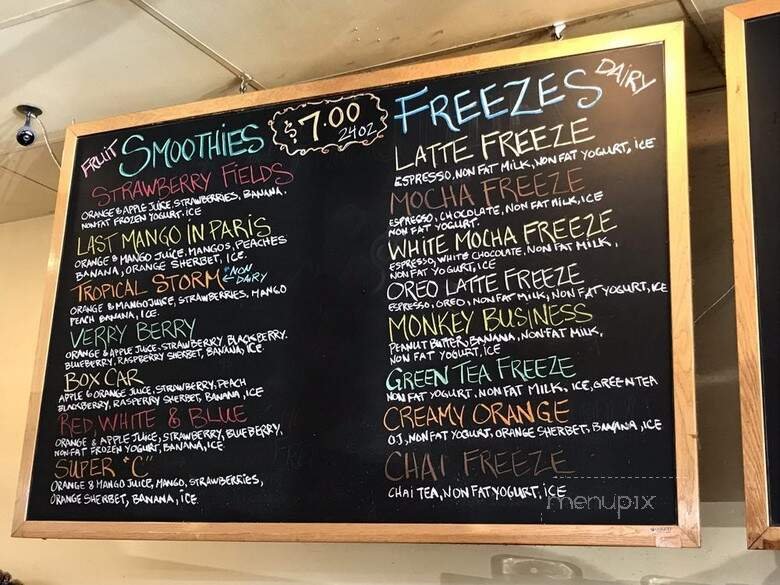 FRUIT SMOOTHIES
$7.00
24OZ
STRAWBERRY FIELDS
ORANGE & APPLE JUICE, STRAWBERRIES, BANANA.
NONFAT FROZEN YOGURT. ICE
LAST MANGO IN PARIS
ORANGE & MANGO JUICE, MANGOS, PEACHES
BANANA, ORANGE SHERBET, ICE.
TROPICAL STORM ← NON DAIRY
ORANGE & MANGO JUICE, STRAWBERRIES, MANGO
PEACH BANANA, ICE.
VERRY BERRY
ORANGE & APPLE JUICE, STRAWBERRY, BLACKBERRY.
BLUEBERRY, RASPBERRY SHERBET, BANANA, ICE.
BOX CAR
APPLE & ORANGE JUICE, STRAWBERRY, PEACH
BLACKBERRY, RASPERRY SHERBET, BANANA, ICE
RED, WHITE & BLUE
ORANGE & APPLE JUICE, STRAWBERRY, BLUEBERRY,
NONFAT FROZEN YOGURT, BANANA, ICE.
SUPER "C"
ORANGE & MANGO JUICE, MANGO, STRAWBERRIES,
ORANGE SHERBET, BANANA, ICE.
FREEZES DAIRY
LATTE FREEZE
ESPRESSO, NON FAT MILK, NON FAT YOGURT, ICE
MOCHA FREEZE
ESPRESSO, CHOCOLATE, NON FAT MILK, ICE
NON FAT YOGURT.
WHITE MOCHA FREEZE
ESPRESSO, WHITE CHOCOLATE, NON FAT MILK,
NON FAT YOGURT, ICE
OREO LATTE FREEZE
ESPRESSO, OREO, NON FAT MILK, NON FAT YOGURT, ICE
MONKEY BUSINESS
PEANUT BUTTER, BANANA, NON-FAT MILK,
NON FAT YOGURT, ICE
GREEN TEA FREEZE
NON FAT YOGURT, NON FAT MILK, ICE, GREEN TEA
CREAMY ORANGE
O.J, NON FAT YOGURT, ORANGE SHERBET, BANANA, ICE
CHAI FREEZE
CHAI TEA, NON FAT YOGURT, ICE
menupix